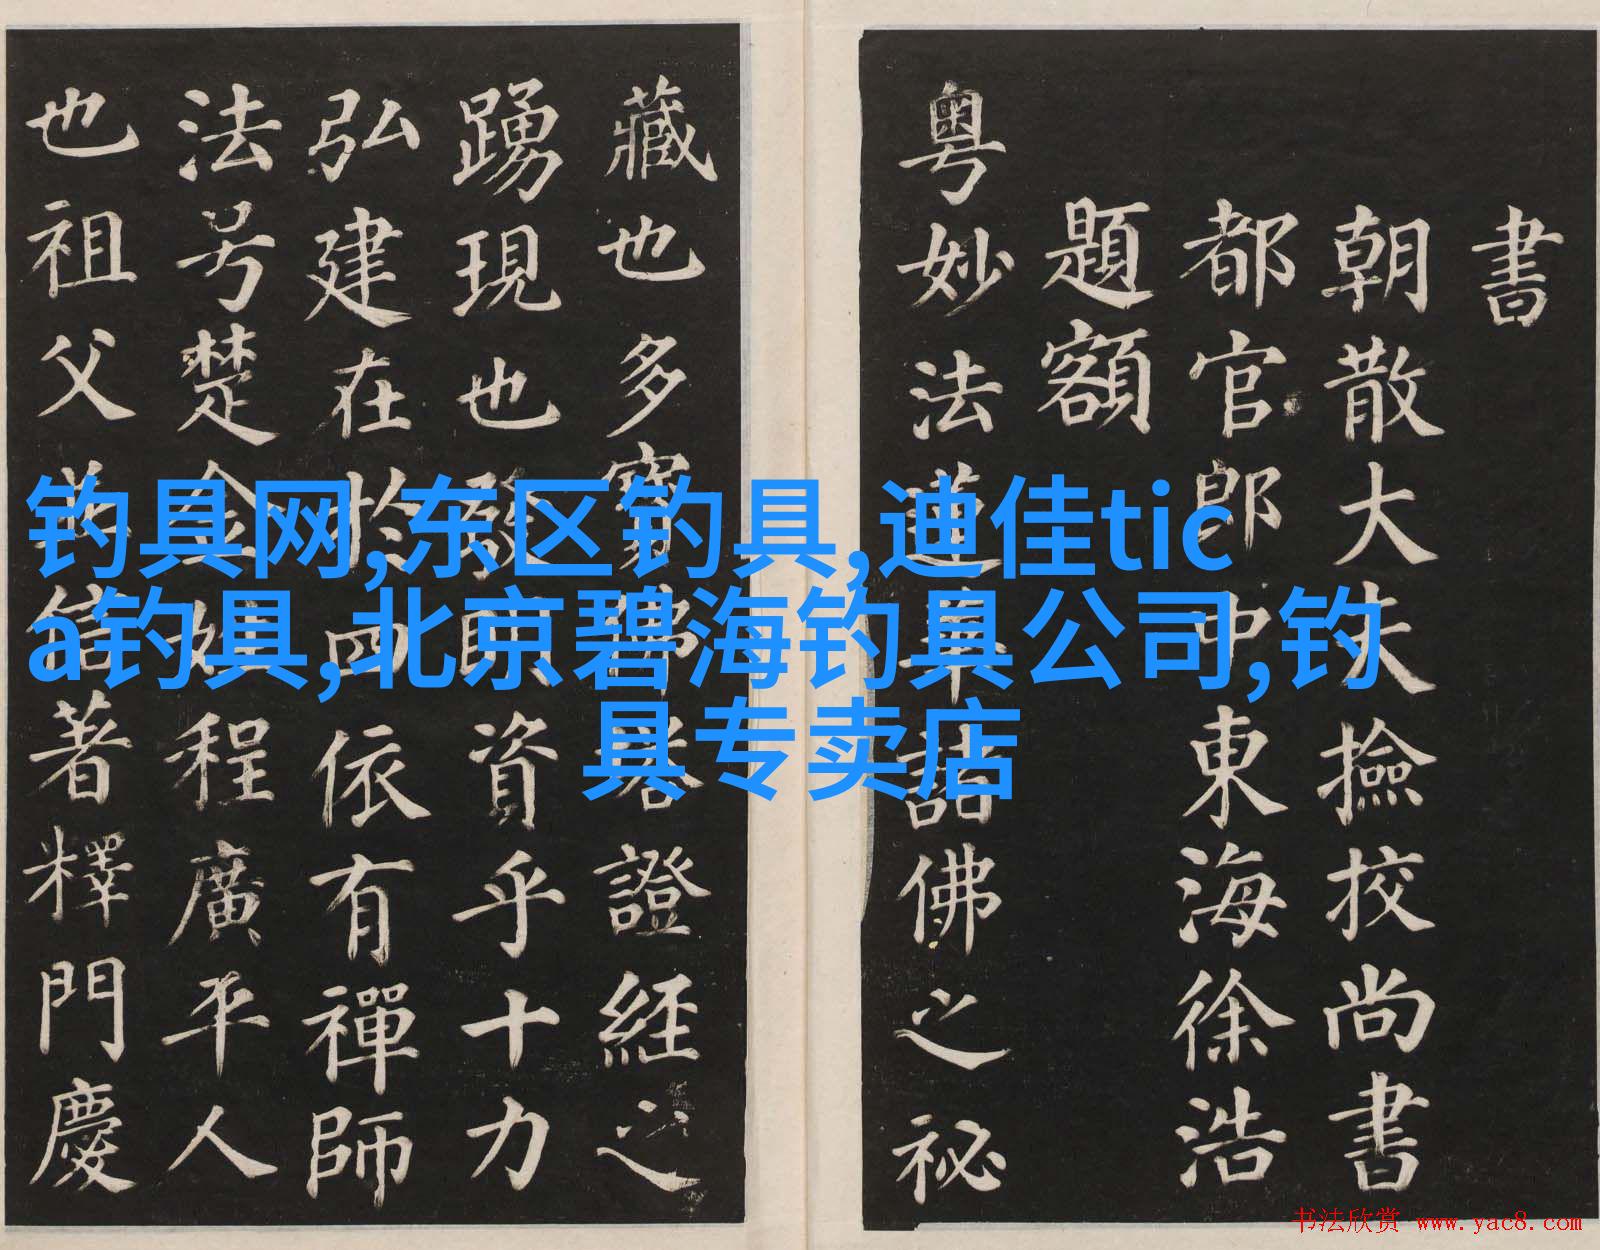 钓具网,东区钓具,迪佳tic
a钓具,北京碧海钓具公司,钓
具专卖店
書
朝散大夫撿挍尚書
都官郎中東海徐浩
題額
粤妙法蓮華諸佛之祕
藏也多寳佛塔證經之
踴現也發明資乎十力
弘建在於四依有禪師
法号楚金姓程廣平人
也祖父並信著釋門慶
书法欣赏 www.yac8.com